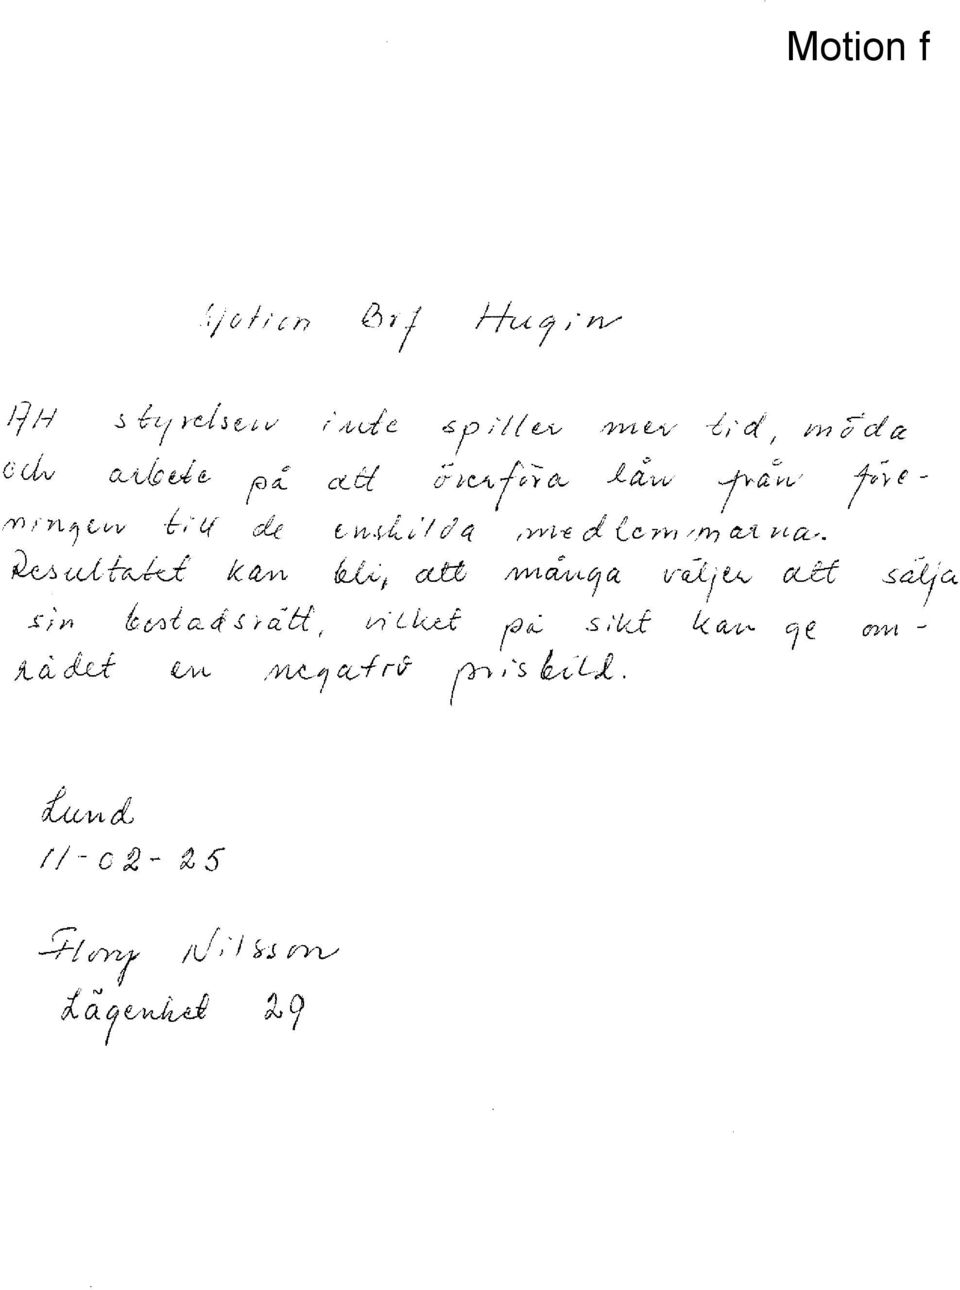 Motion f
Motion Brf Hugin
Att styrelsen inte spiller mer tid, möda
och arbete på att överföra lån från före-
ningen till de enskilda medlemmarna.
Resultatet kan bli, att många väljer att sälja
sin bostadsrätt, vilket på sikt kan ge om-
rådet en negativ prisbild.
Lund
11-02-25
Flory Nilsson
Lägenhet 29